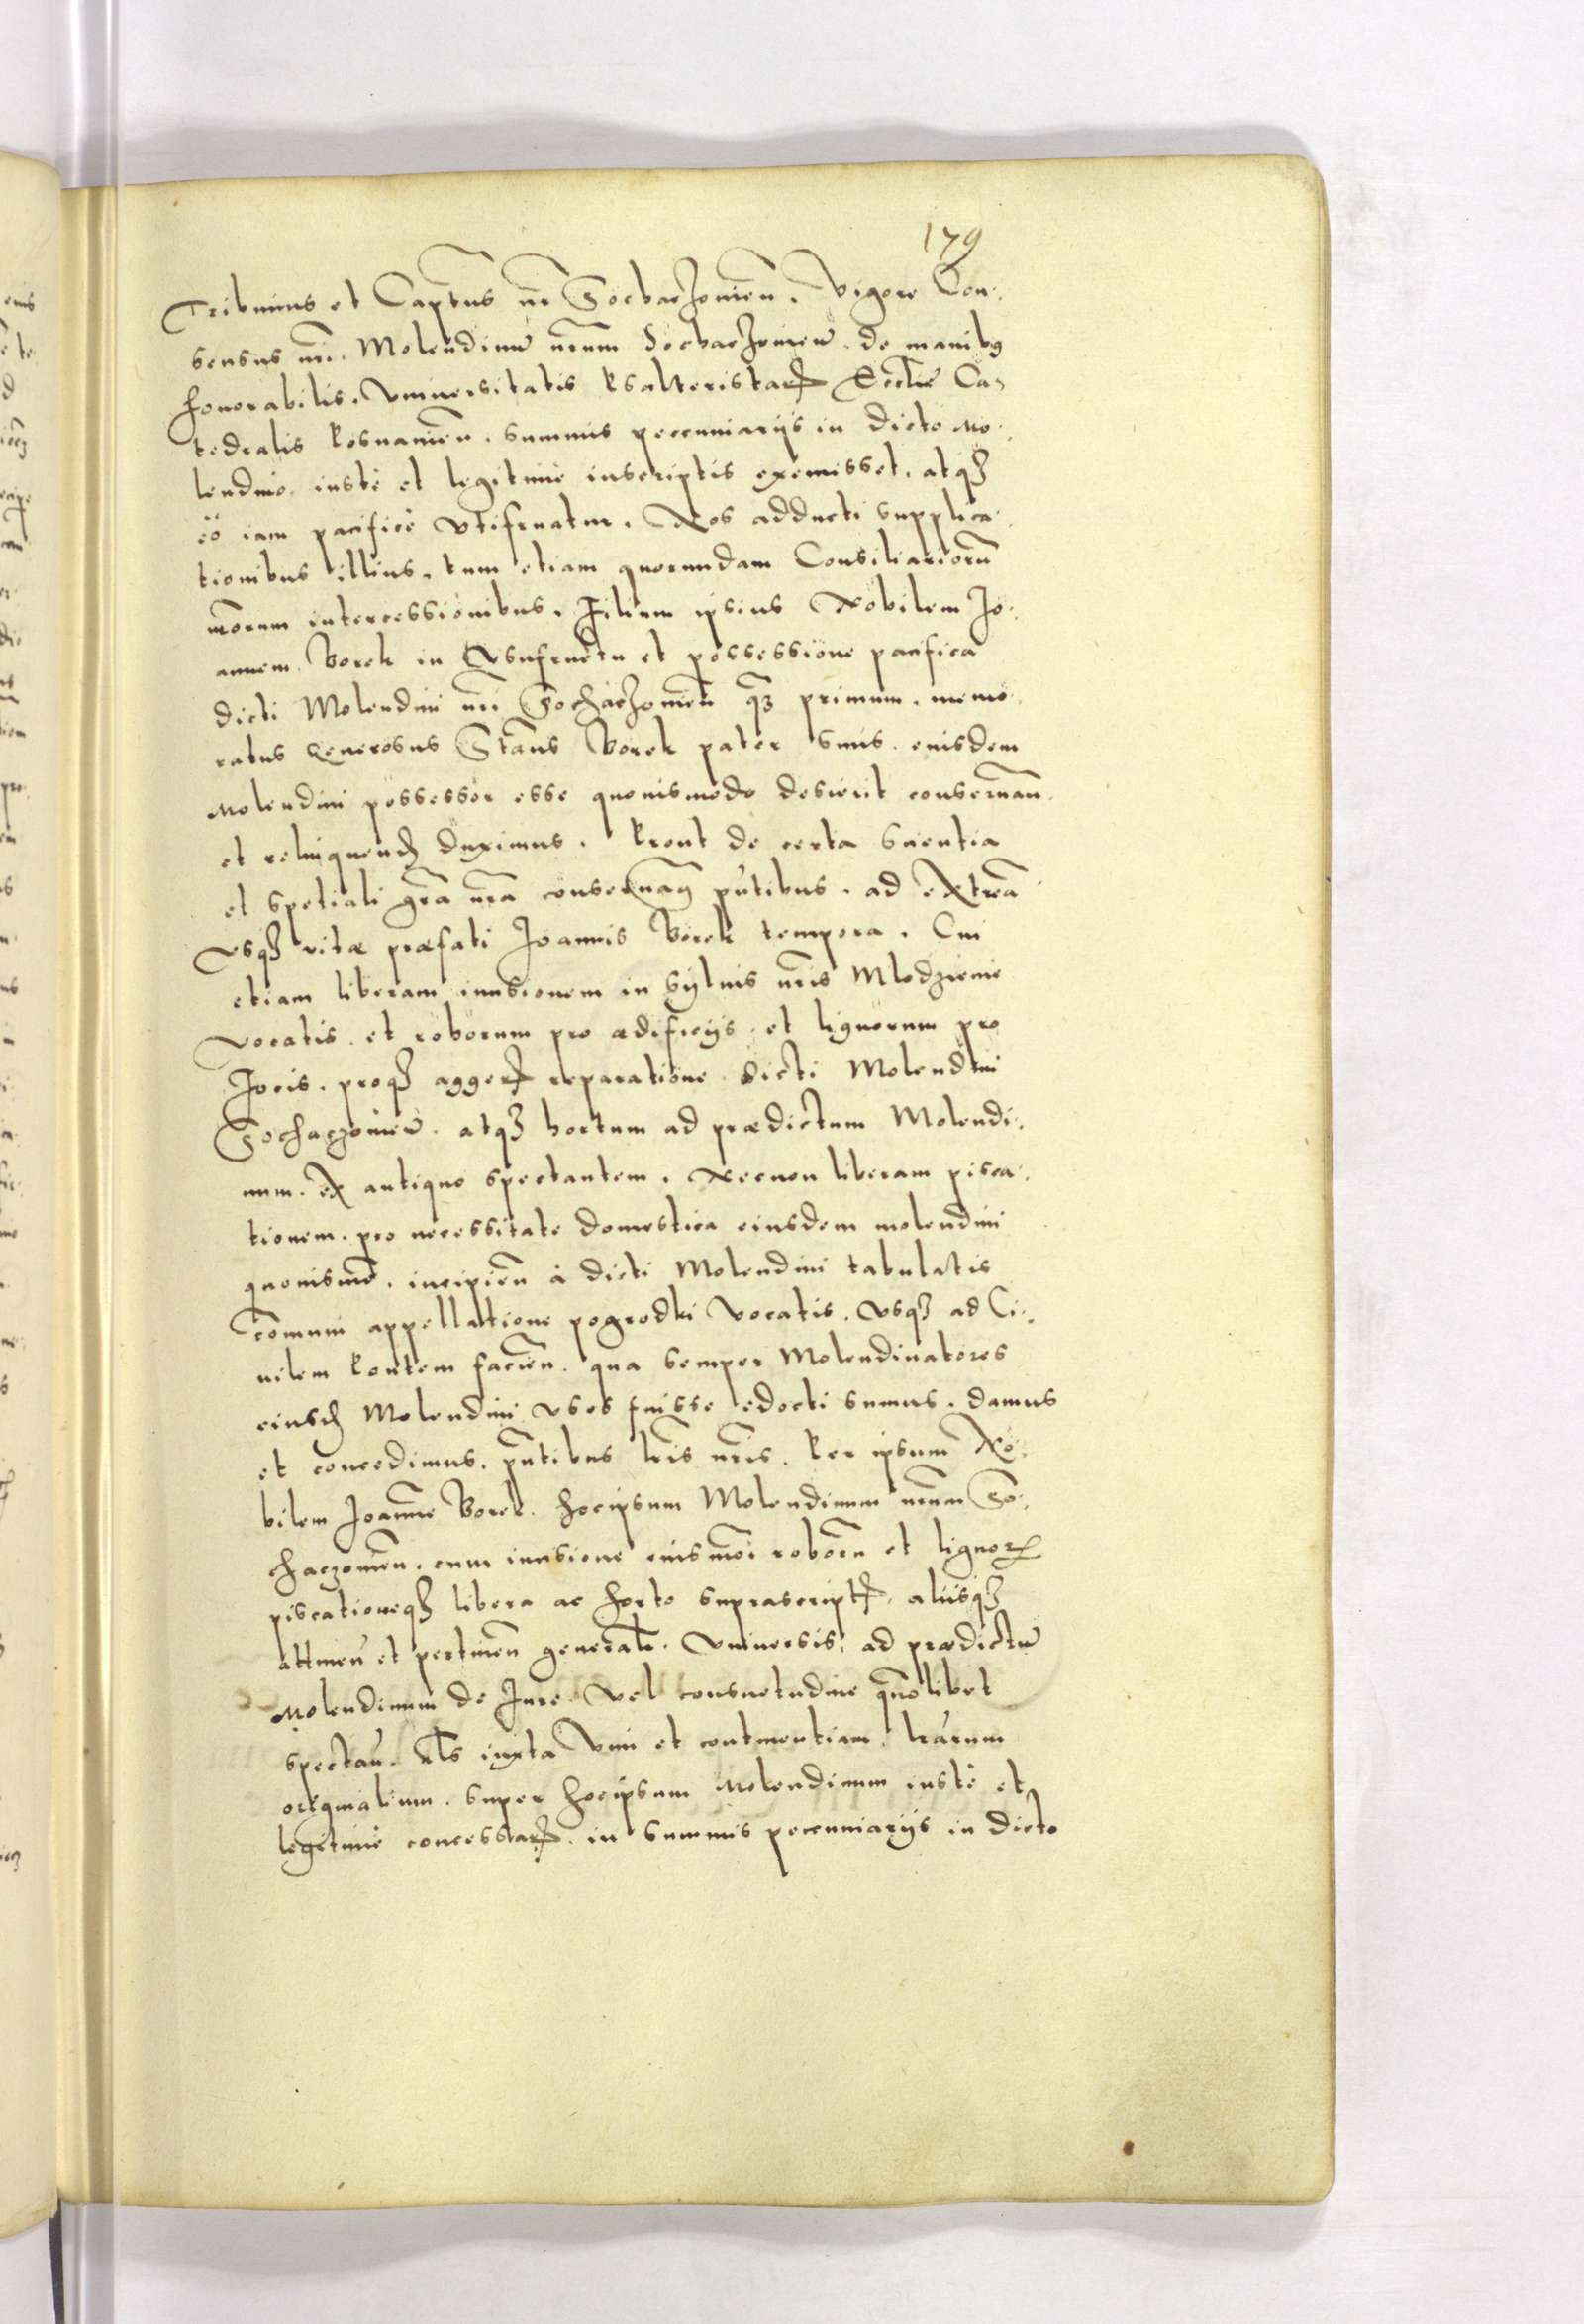 179
Tribunus et Captūs nr̄ Sochaczouieñ. Vigore Con:
sensus nr̄i. Molendinū nrūm Sochaczouieñ. de manibꝰ
honorabilis. Vniuersitatis Psalteristarꝝ Eccl̄ie Ca:
tedralis Posnanieñ. summis pecuniarijs in dicto Mo:
lendino. iustè et legitimè inscriptis exemisset. atqꝫ
eò iam pacificè vtifruatur. Nos adducti supplica:
tionibus illius. tum etiam quorundam Consiliariorū
nr̄orum intercessionibus. Filium ipsius Nobilem Jo:
annem Borek in Vsufructu et possessione pacifica
dicti Molendini nr̄i Sochaczouieñ qꝫ primum. memo:
ratus Generosus Stañs Borek pater suus. eiusdem
Molendini possessor esse quouismodo desierit conseruañ.
et relinquenđ duximus. Prout de certa scientia
et spetiali gr̄a nr̄a conseruamꝰ pn̄tibus. ad extrēa
vsqꝫ vitæ præfati Joannis Borek tempora. Cui
etiam liberam inuisionem in syluis nr̄is Mlodzienie
vocatis. et roborum pro ædificijs. et lignorum pro
focis. proqꝫ aggerꝝ reparatione. dicti Molendini
Sochaczouieñ. atqꝫ hortum ad prædictum Molendi:
num. ex antiquo spectantem. Necnon liberam pisca:
tionem. pro necessitate domestica eiusdem molendini
quouismō. incipieñ à dicti Molendini tabulatis
cōmuni appellatione pogrodki vocatis. vsqꝫ ad Ci:
uilem Pontem facieñ. qua semper Molendinatores
eiusđ Molendini vsos fuisse edocti sumus. damus
et concedimus. pn̄tibus lr̄is nr̄is. Per ipsum No:
bilem Joannē Borek. hocipsum Molendinum nrūm So:
chaczouieñ. cum inuisione eiusmōi roborū et lignorꝝ
piscationeqꝫ libera ac horto suprascriptꝭ. aliisqꝫ
attineñ et pertineñ generalr̄. Vniuersis. ad prædictū
Molendinum de Jure. vel consuetudine quōlibet
spectañ. als iuxta vim et continentiam lr̄arum
originalium. super hocipsum Molendinum iustè et
legitimè concessarꝝ. in summis pecuniarijs in dicto